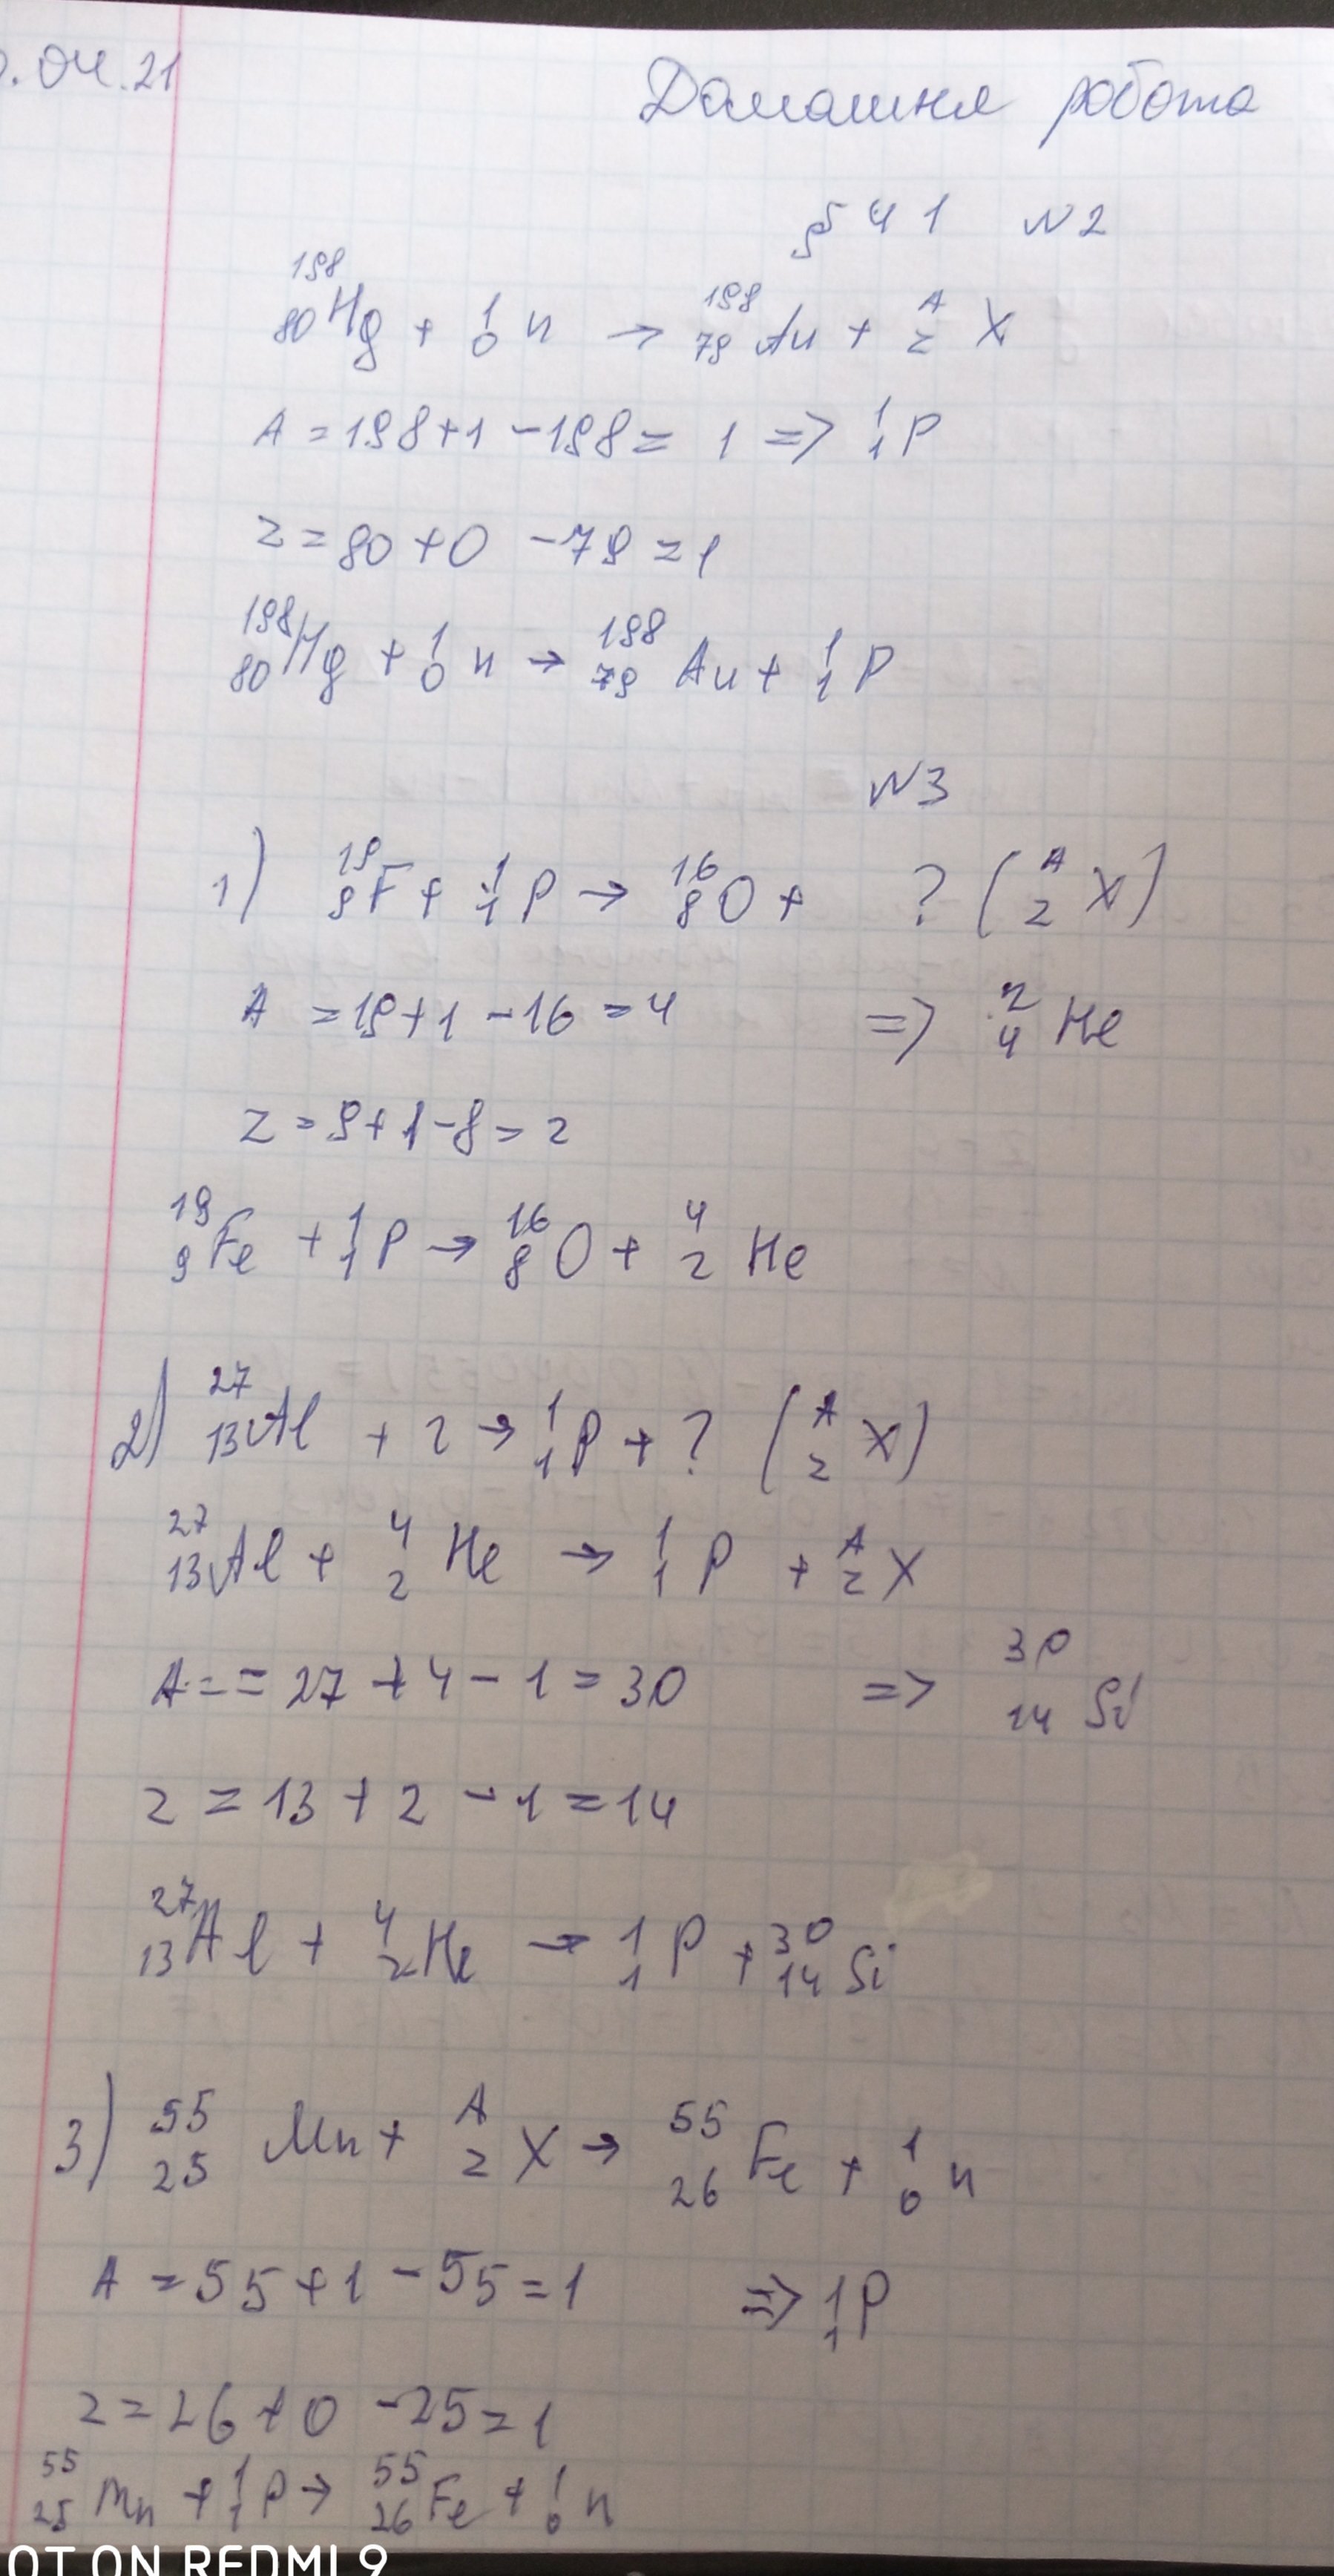 .04.21
Домашня робота
§ 41 №2
¹⁹⁸₈₀Hg + ¹₀n → ¹⁹⁸₇₉Au + ᴬ_Z X
A = 198+1 - 198 = 1 => ¹₁P
Z = 80 + 0 - 79 = 1
¹⁹⁸₈₀Hg + ¹₀n → ¹⁹⁸₇₉Au + ¹₁P
№3
1) ¹⁹₉F + ¹₁P → ¹⁶₈O + ? (ᴬ_Z X)
A = 19+1 - 16 = 4 => ²₄He
Z = 9+1-8 = 2
¹⁹₉Fe + ¹₁P → ¹⁶₈O + ⁴₂He
2) ²⁷₁₃Al + ? → ¹₁P + ? (ᴬ_Z X)
²⁷₁₃Al + ⁴₂He → ¹₁P + ᴬ_Z X
A = = 27 + 4 - 1 = 30 => ³⁰₁₄Si
Z = 13 + 2 - 1 = 14
²⁷₁₃Al + ⁴₂He → ¹₁P + ³⁰₁₄Si
3) ⁵⁵₂₅Mn + ᴬ_Z X → ⁵⁵₂₆Fe + ¹₀n
A = 55+1 - 55 = 1 => ¹₁P
Z = 26 + 0 - 25 = 1
⁵⁵₂₅Mn + ¹₁P → ⁵⁵₂₆Fe + ¹₀n
OT ON REDMI 9